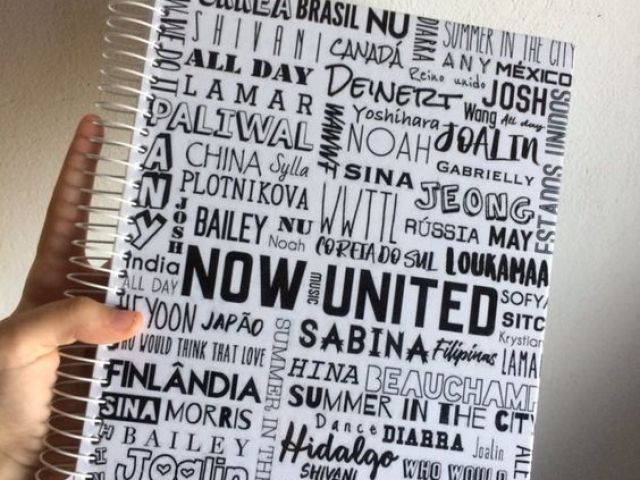 BRASIL NU
DIARRA
SUMMER IN THE CITY
SHIVANI
CANADÁ
ANY MÉXICO
ALL DAY
Reino unido
JOSH
LAMAR
DEINERT
Wang All day
PALIWAL
Yoshihara
JOALIN
NOAH
ESTADOS UNIDOS
CHINA Sylla
SINA
GABRIELLY
ANY
PLOTNIKOVA
WWTTL
JEONG
JOSH
BAILEY NU
RÚSSIA MAY
Noah
COREIA DO SUL
LOUKAMAA
India
NOW UNITED
music
ALL DAY
SOFYA
HEYOON JAPÃO
SITC
SABINA
Filipinas
Krystian
WHO WOULD THINK THAT LOVE
LAMA
SUMMER IN THE
FINLÂNDIA
HINA BEAUCHAMP
SINA MORRIS
SUMMER IN THE CITY
Dance
DIARRA
Joalin
BAILEY
Hidalgo
ALL
Joalin
SHIVANI
WHO WOULD